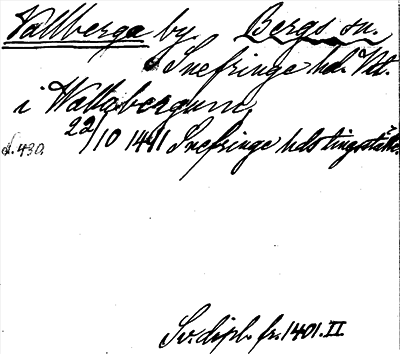 Vallberga by Bergs sn.
Snefringe hd. Vst.
i Wallabergum
22/10 1411 Snefringe hds tingställe.
s. 430.
Sv. dipl. fr. 1401. II